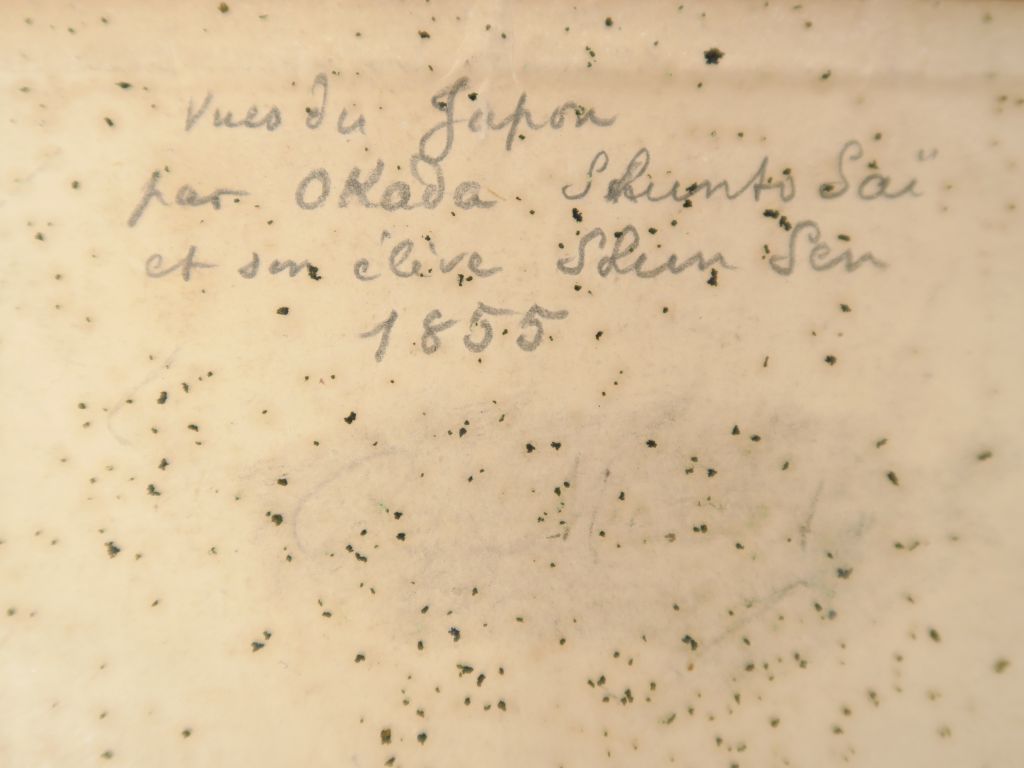 Vues du Japon
par OKada Shunto Saï
et son élève Shun Sen
1855